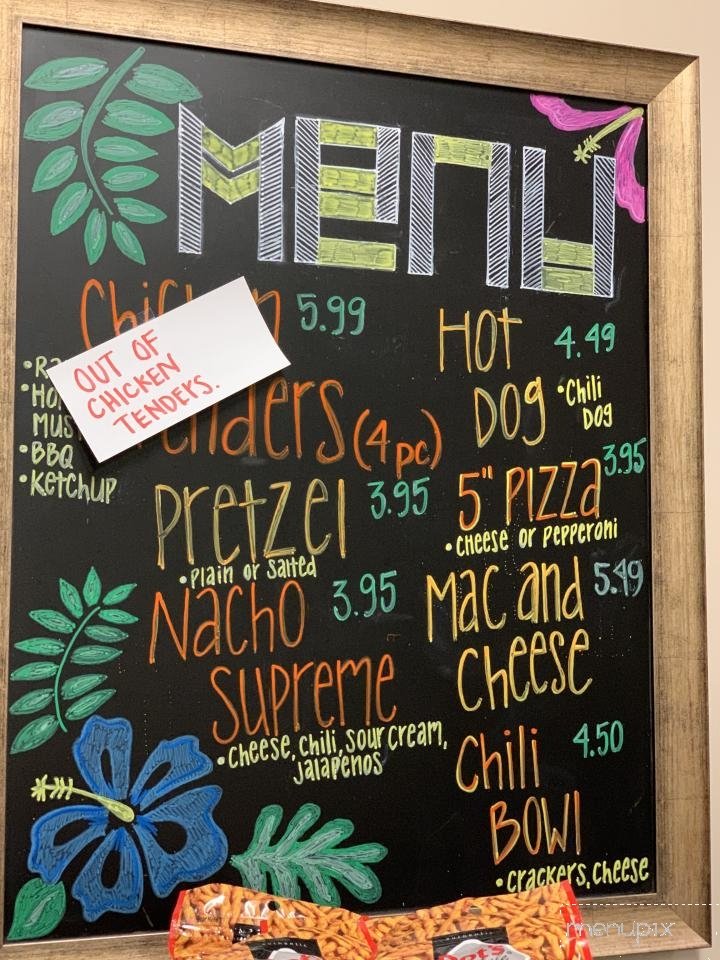 MENU
5.99
OUT OF
CHICKEN
TENDERS.
(4pc)
• BBQ
• Ketchup
Pretzel 3.95
• Plain or salted
Nacho 3.95
Supreme
• Cheese, chili, sour cream,
Jalapenos
Hot 4.49
Dog • Chili
Dog
5" Pizza 3.95
• Cheese or Pepperoni
Mac and 5.49
Cheese
Chili 4.50
Bowl
• crackers, cheese
Dot's
menupix